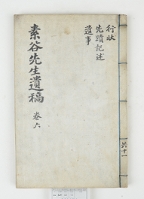 行狀
先蹟記述
遺事
素谷先生遺稿
卷六